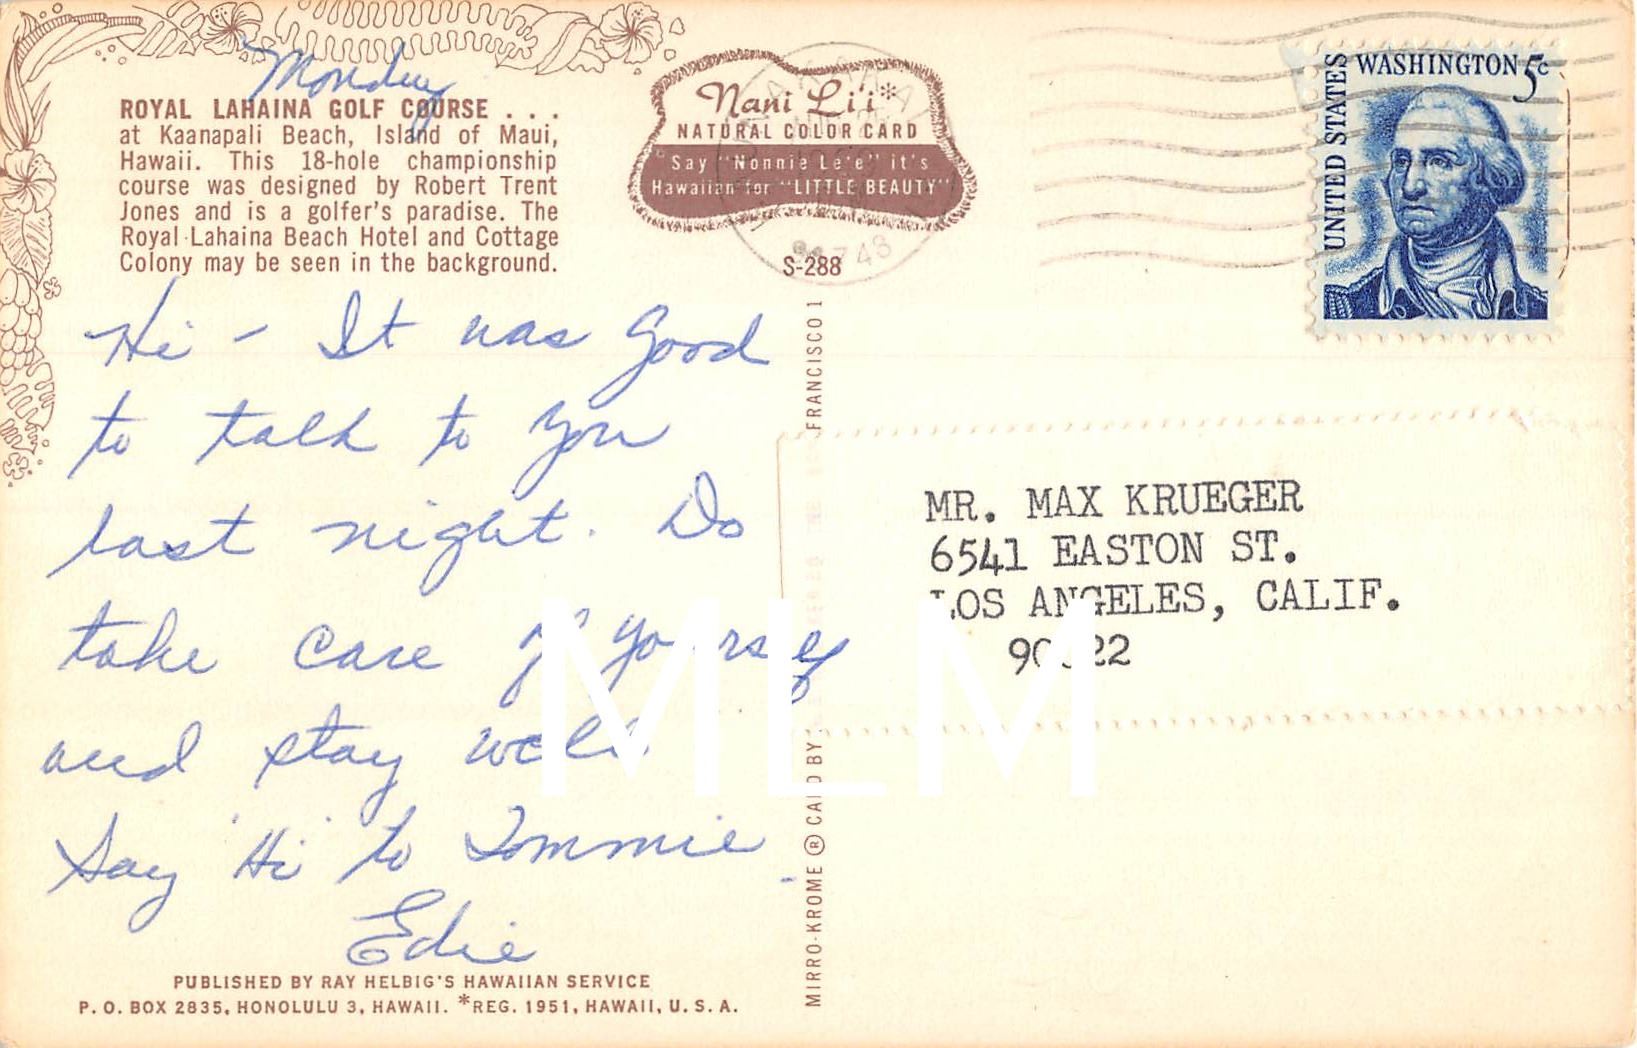 Monday
ROYAL LAHAINA GOLF COURSE . . .
at Kaanapali Beach, Island of Maui,
Hawaii. This 18-hole championship
course was designed by Robert Trent
Jones and is a golfer's paradise. The
Royal Lahaina Beach Hotel and Cottage
Colony may be seen in the background.
Nani Li'i*
NATURAL COLOR CARD
Say "Nonnie Le'e" it's
Hawaiian for "LITTLE BEAUTY"
S-288
UNITED STATES
WASHINGTON 5c
Hi - It was good
to talk to you
last night. Do
take care of yourself
and stay well
Say 'Hi' to Tommie
Edie
PUBLISHED BY RAY HELBIG'S HAWAIIAN SERVICE
P. O. BOX 2835, HONOLULU 3, HAWAII. *REG. 1951, HAWAII, U. S. A.
MIRRO-KROME ® CARD BY
FRANCISCO 1
MR. MAX KRUEGER
6541 EASTON ST.
LOS ANGELES, CALIF.
MLM